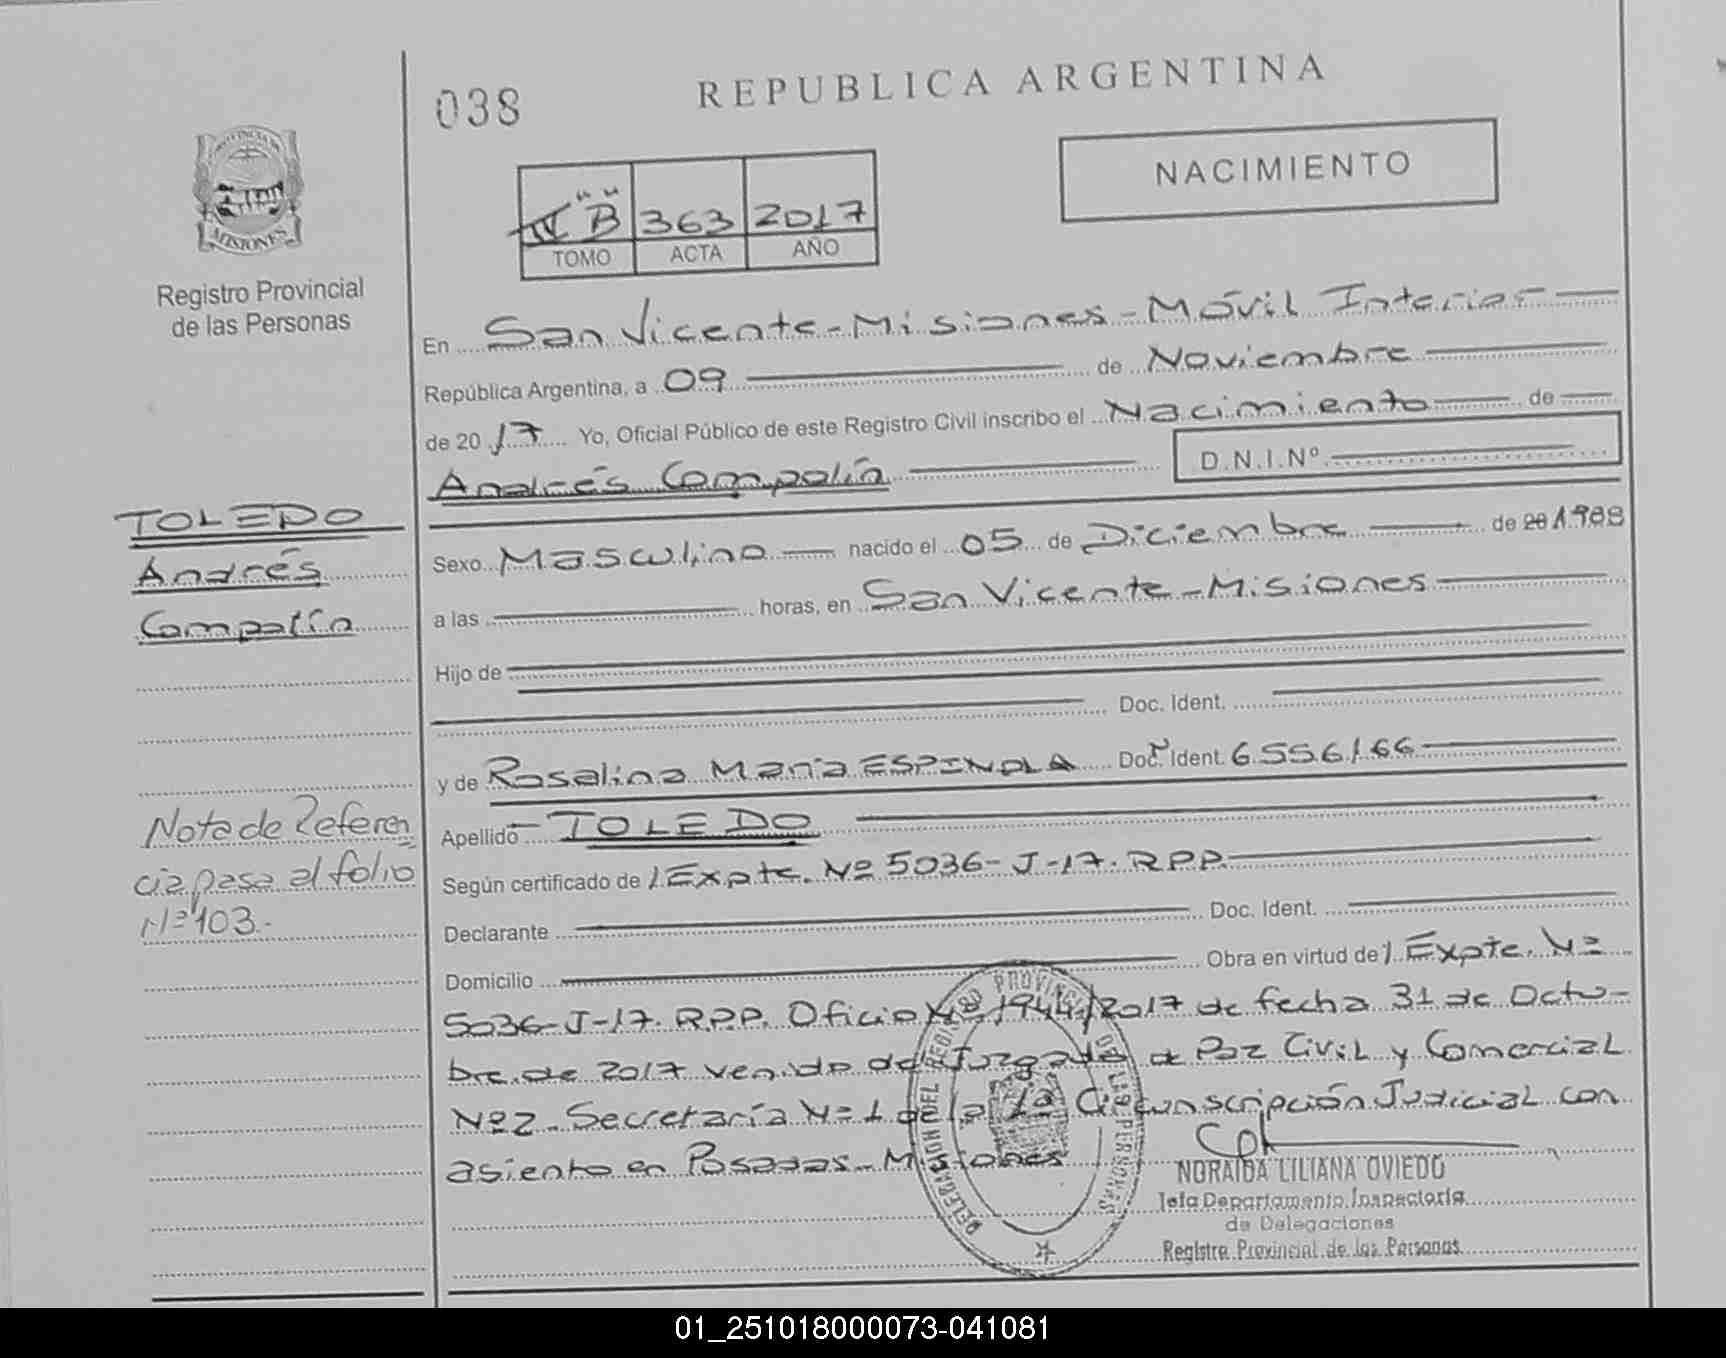 038
REPUBLICA ARGENTINA
NACIMIENTO
IV "B" 363 2017
TOMO ACTA AÑO
PROVINCIA DE
MISIONES
Registro Provincial
de las Personas
En San Vicente - Misiones - Móvil Interior
República Argentina, a 09 de Noviembre
de 2017 Yo, Oficial Público de este Registro Civil inscribo el Nacimiento de
Andrés Compalín D.N.I.Nº
TOLEDO
Andrés
Compalín
Sexo Masculino nacido el 05 de Diciembre de 20 1988
a las horas, en San Vicente - Misiones
Hijo de
Doc. Ident.
y de Rosalina María ESPINDLA Doc. Ident. 6.556.166
Apellido - TOLEDO
Según certificado de / Expte. Nº 5036-J-17. R.P.P.
Declarante Doc. Ident.
Domicilio Obra en virtud de / Expte. Nº
5036-J-17. R.P.P. Oficio Nº 1944/2017 de fecha 31 de Octu-
bre de 2017 venido del Juzgado de Paz Civil y Comercial
Nº 2 - Secretaría Nº 1 de la 1ª Circunscripción Judicial con
asiento en Posadas - Misiones
Nota de Referen
cia pasa al folio
Nº 103.-
DELEGACION DEL REGISTRO PROVINCIAL DE LAS PERSONAS
NORAIDA LILIANA OVIEDO
Jefa Departamento Inspectoría
de Delegaciones
Registro Provincial de las Personas
01_251018000073-041081